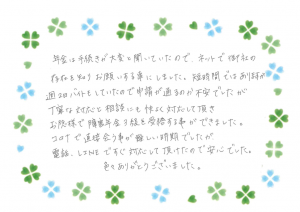 年金は手続きが大変と聞いていたので、ネットで御社の
存在を知りお願いする事にしました。短時間ではありますが
週3日バイトもしていたので申請が通るのか不安でしたが
丁寧な対応と相談にも快よく対応して頂き
お陰様で障害年金3級を受給する事ができました。
コロナで直接会う事が難しい時期でしたが
電話、LINEですぐ対応して頂けたので安心でした。
色々ありがとうございました。